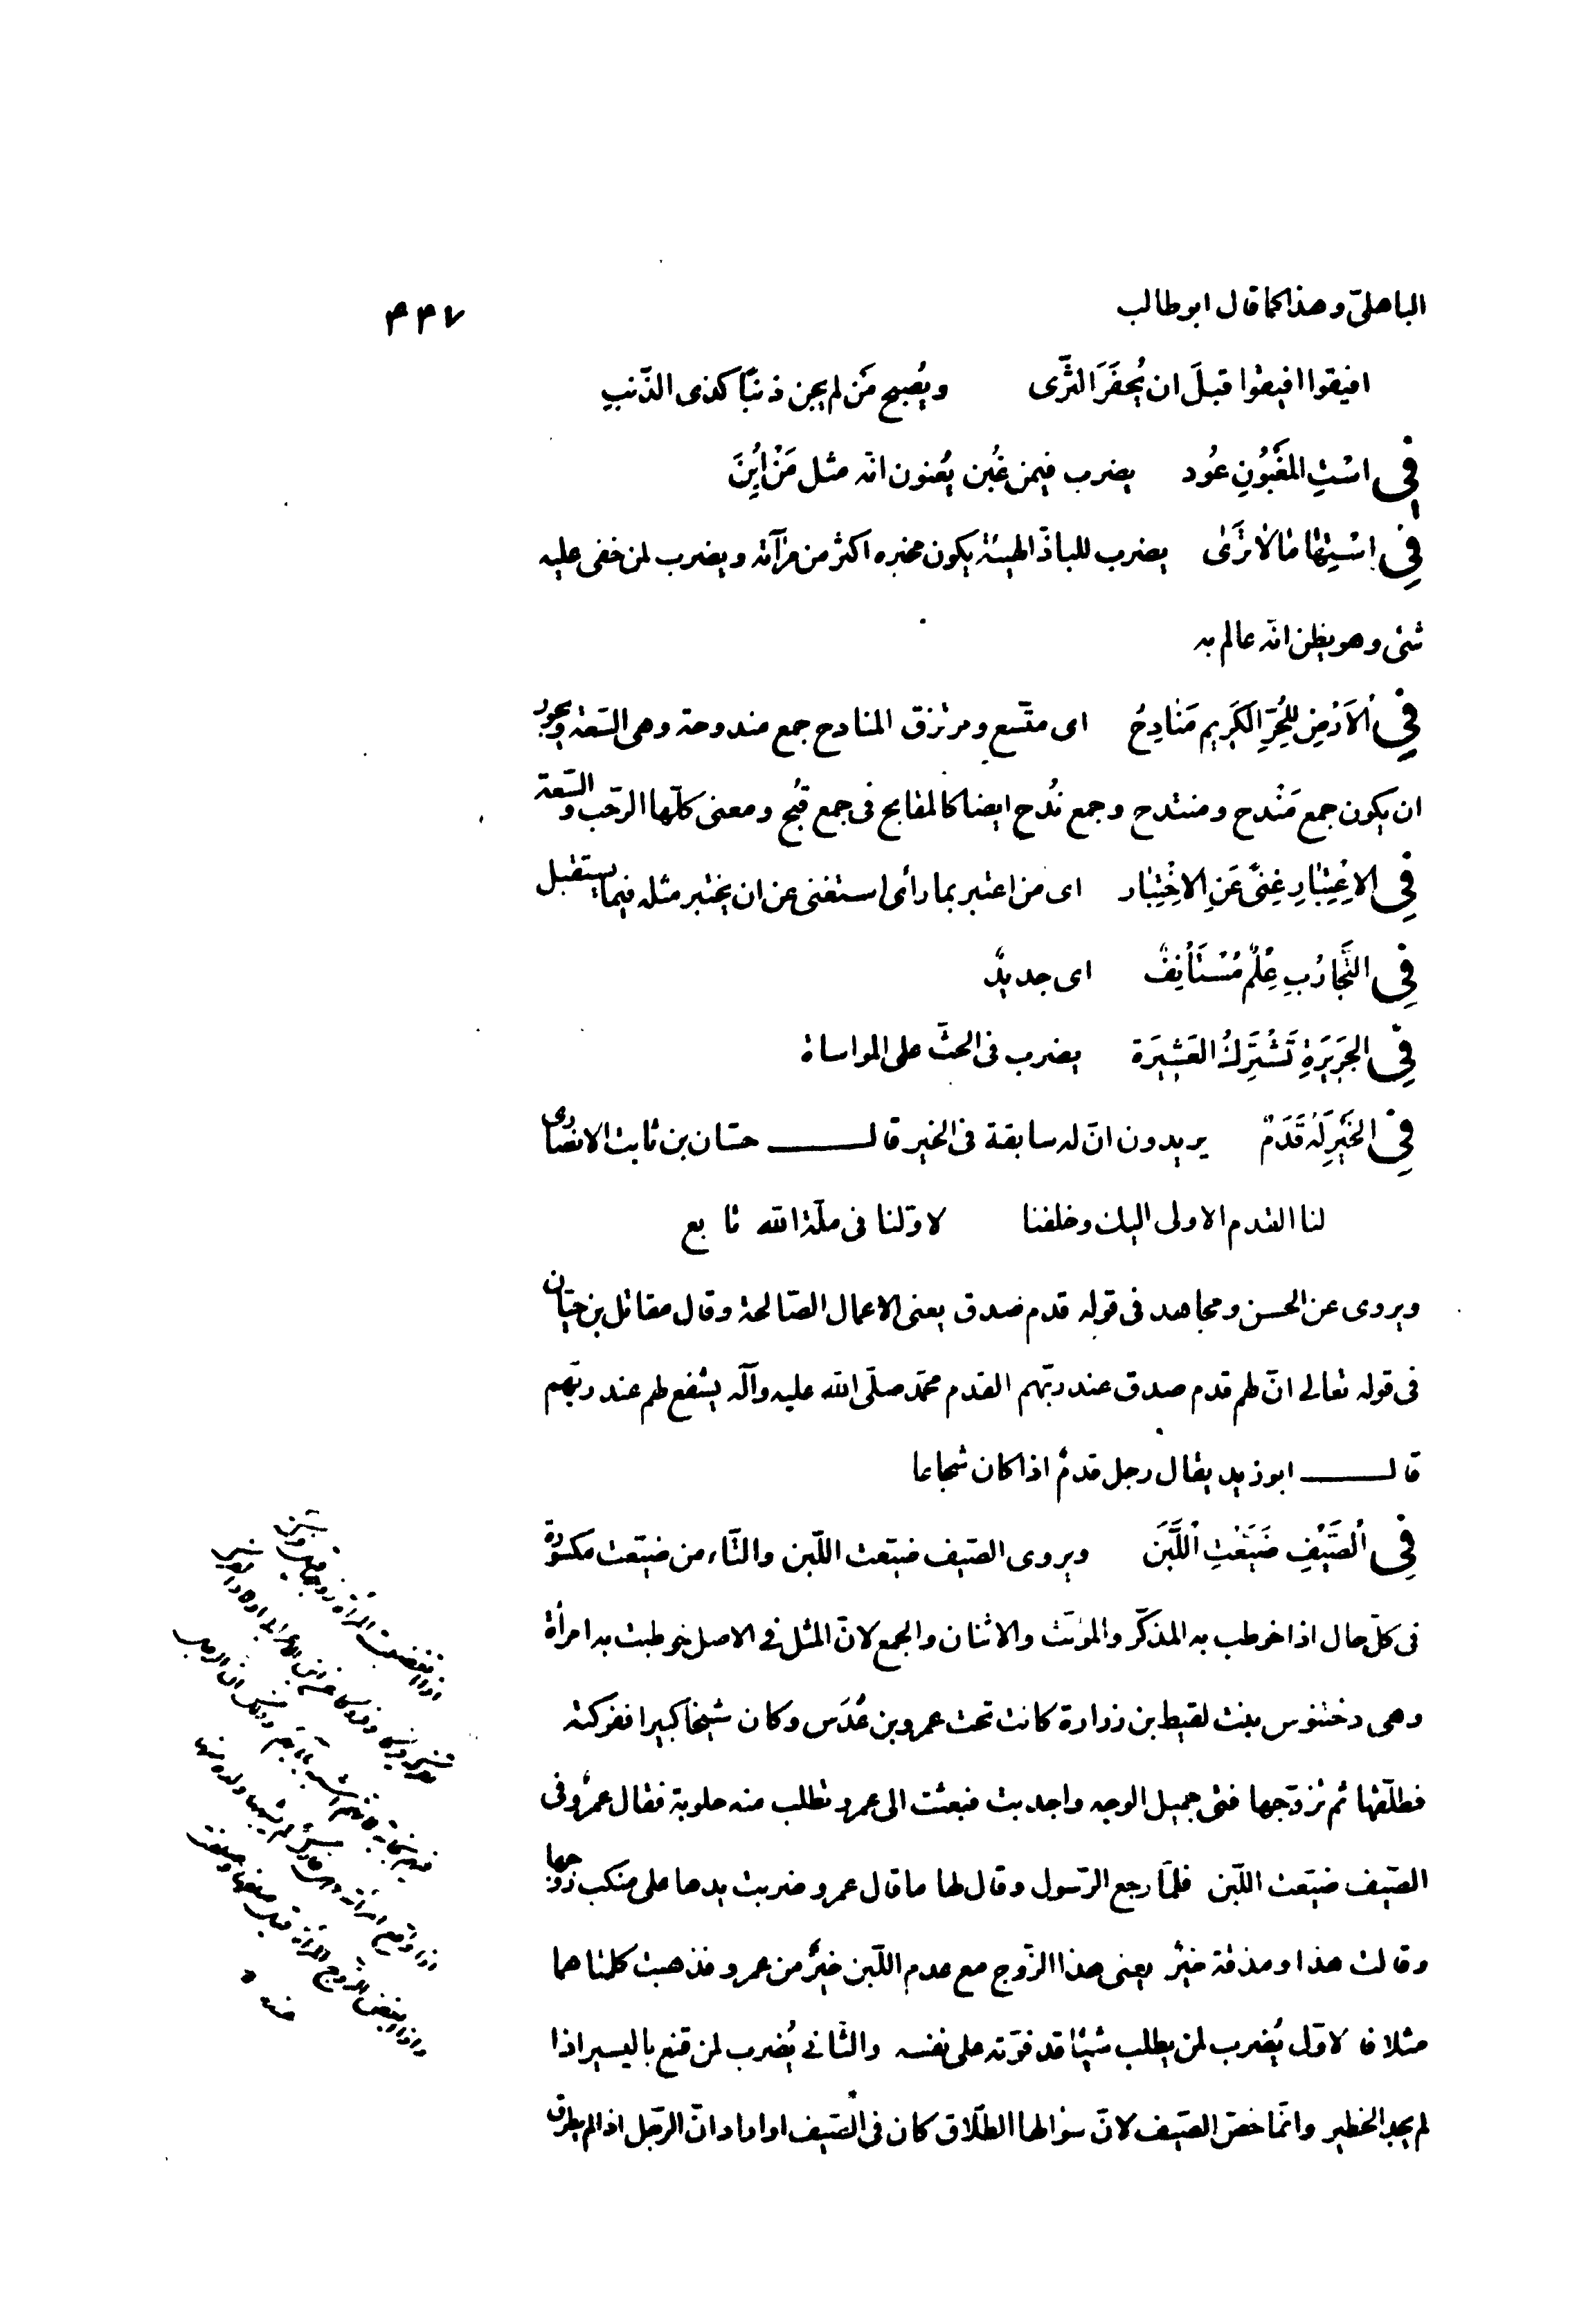 الباهلىّ وهذا كما قال ابو طالب
۴۴۷
افيقوا افيقوا قبلَ ان يُحفَرَ الثّرَى ويُصبح مَن لم يجن ذنبًا كذى الذّنبِ
فِى اسْتِ المَغْبُونِ عُود يضرب فيمن غُبن يُعنون انّه مثل مَنْ اُبِنَ
فِى اسْتِهٰا مٰا لاٰ تَرٰى يضرب للباذّ الهيئة يكون مخبره اكثر من مرآته ويضرب لمن خفى عليه
شئ وهو يظن انّه عالم به
فِى الْاَرْضِ لِلْحُرِّ الكَرِيمِ مَنٰادِحُ اى متّسع ومرتزق المنادح جمع مندوحة وهى السّعة ويجوز
ان يكون جمع مَنْدح ومنتدح وجمع نُدح ايضا كالمقابح فى جمع قُبْح ومعنى كلّها الرّحب والسّعة
فِى الاِعْتِبٰارِ غِنىً عَنِ الاِخْتِبٰار اى من اعتبر بما رأى استغنى عن ان يختبر مثله فيما يستقبل
فِى التَّجٰارُبِ عِلْمٌ مُسْتَأْنِفٌ اى جديدٌ
فِى الجَرِيَرةِ تَشْتَرِكُ العَشِيَرة يضرب فى الحثّ على المواساة
فِى الخَيْرِ لَهُ قَدَمٌ يريدون انّ له سابقة فى الخير قالـــــ حسّان بن ثابت الانصارى
لنا القدم الاولى اليك وخلفنا لاوّلنا فى ملّة الله تابع
ويروى عن الحسن ومجاهد فى قوله قدم صدق يعنى الاعمال الصّالحة وقال مقاتل بن حيّان
فى قوله تعالى انّ لهم قدم صدق عند ربّهم القدم محمّد صلّى الله عليه وآله يشفع لهم عند ربّهم
قالـــــ ابو زيد يقال رجل قدمٌ اذا كان شجاعا
فِى الْصَّيْفِ ضَيَّعْتِ الْلَّبَنَ ويروى الصّيف ضيّعت اللّبن والتّاء من ضيّعت مكسورة
فى كلّ حال اذا خوطب به المذكّر والمؤنّث والاثنان والجمع لانّ المثل فى الاصل خوطبت به امرأة
وهى دختنوس بنت لقيط بن زرارة كانت تحت عمرو بن عُدَس وكان شيخا كبيرا ففركته
فطلّقها ثم تزوّجها فتى جميل الوجه واجدبت فبعثت الى عمرو تطلب منه حلوبة فقال عمرٌو فى
الصّيف ضيّعت اللّبن فلمّا رجع الرّسول وقال لها ما قال عمرو ضربت يدها على منكب زوجها
وقالت هذا ومذقة خيرٌ يعنى هذا الزّوج مع عدم اللّبن خيرٌ من عمرو فذهبت كلمتاهما
مثلا فالاوّل يُضرب لمن يطلب شيئا قد فوّته على نفسه والثّانى يُضرب لمن قنع باليسير اذا
لم يجد الخطير وانّما خصّ الصّيف لانّ سؤالها الطّلاق كان فى الصّيف او ارادانّ الرّجل اذا لم يطرق